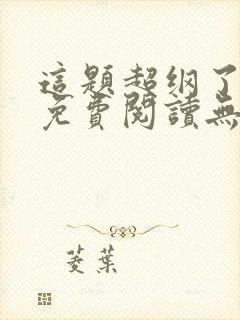 這題超纲了
免費閱讀無
菱葉